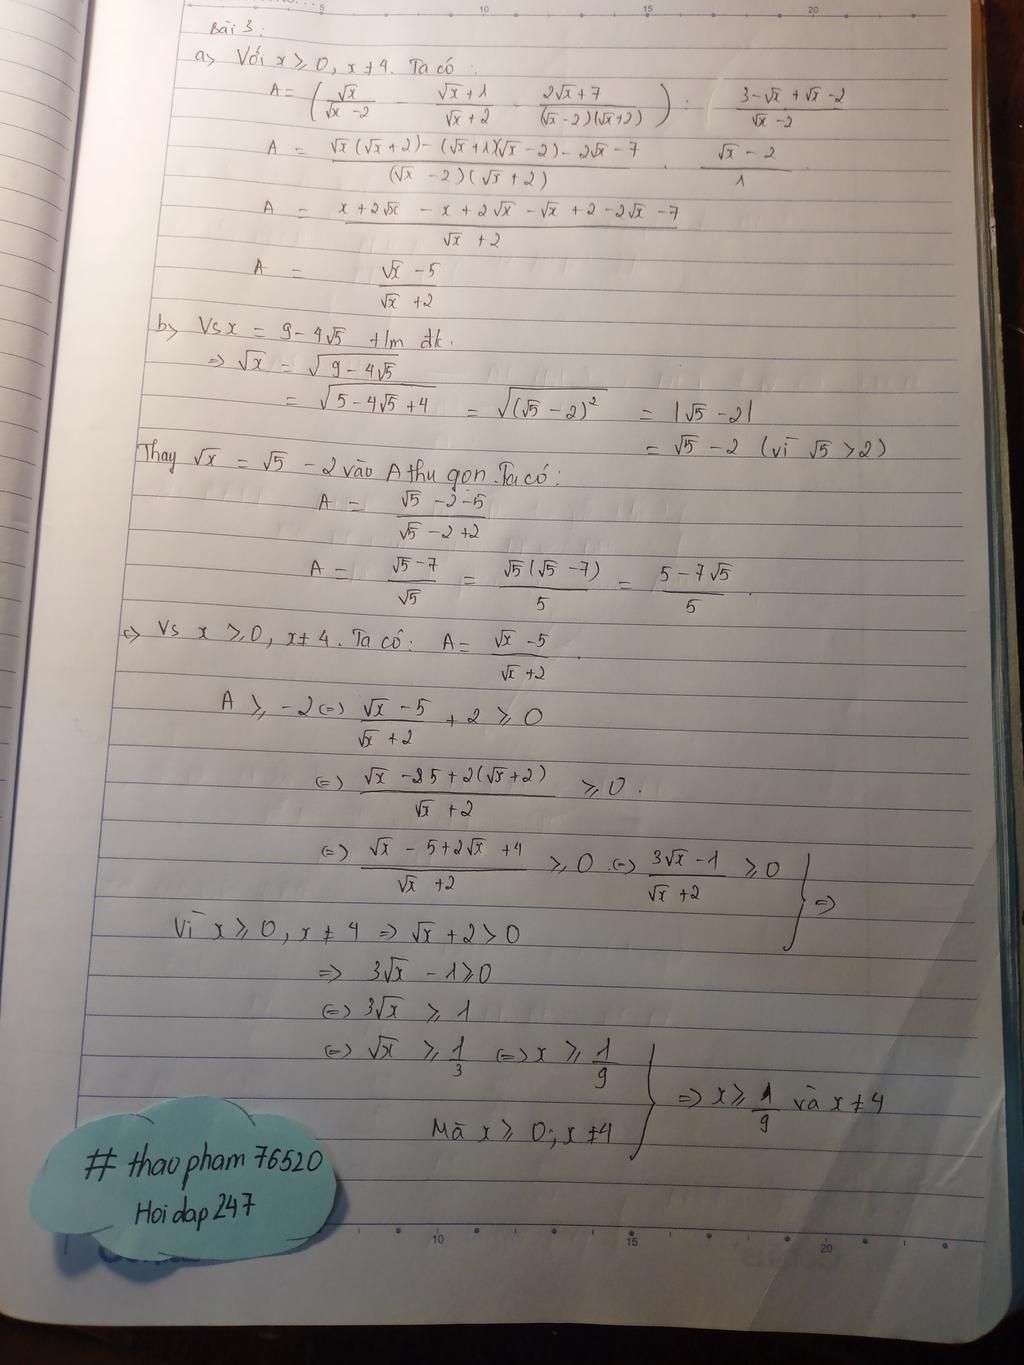 5 10 15 20
Bài 3:
a> Với x ⩾ 0, x ≠ 4. Ta có :
A = ( √x / (√x - 2) - (√x + 1) / (√x + 2) - (2√x + 7) / ((√x - 2)(√x + 2)) ) : (3 - √x + √x - 2) / (√x - 2)
A = (√x (√x + 2) - (√x + 1)(√x - 2) - 2√x - 7) / ((√x - 2)(√x + 2)) . (√x - 2) / 1
A = (x + 2√x - x + 2√x - √x + 2 - 2√x - 7) / (√x + 2)
A = (√x - 5) / (√x + 2)
b> Vs x = 9 - 4√5 t/m đk.
⇒ √x = √(9 - 4√5)
= √(5 - 4√5 + 4) = √((√5 - 2)²) = |√5 - 2|
= √5 - 2 (vì √5 > 2)
Thay √x = √5 - 2 vào A thu gọn. Ta có:
A = (√5 - 2 - 5) / (√5 - 2 + 2)
A = (√5 - 7) / √5 = √5(√5 - 7) / 5 = (5 - 7√5) / 5.
c> Vs x ⩾ 0, x ≠ 4. Ta có: A = (√x - 5) / (√x + 2).
A ⩾ -2 ⇔ (√x - 5) / (√x + 2) + 2 ⩾ 0
⇔ (√x - 5 + 2(√x + 2)) / (√x + 2) ⩾ 0.
⇔ (√x - 5 + 2√x + 4) / (√x + 2) ⩾ 0 ⇔ (3√x - 1) / (√x + 2) ⩾ 0 } ⇒
Vì x ⩾ 0, x ≠ 4 ⇒ √x + 2 > 0
⇒ 3√x - 1 ⩾ 0
⇔ 3√x ⩾ 1
⇔ √x ⩾ 1/3 ⇔ x ⩾ 1/9
Mà x ⩾ 0; x ≠ 4 } ⇒ x ⩾ 1/9 và x ≠ 4
# thaopham 76520
Hoidap 247
10 15 20